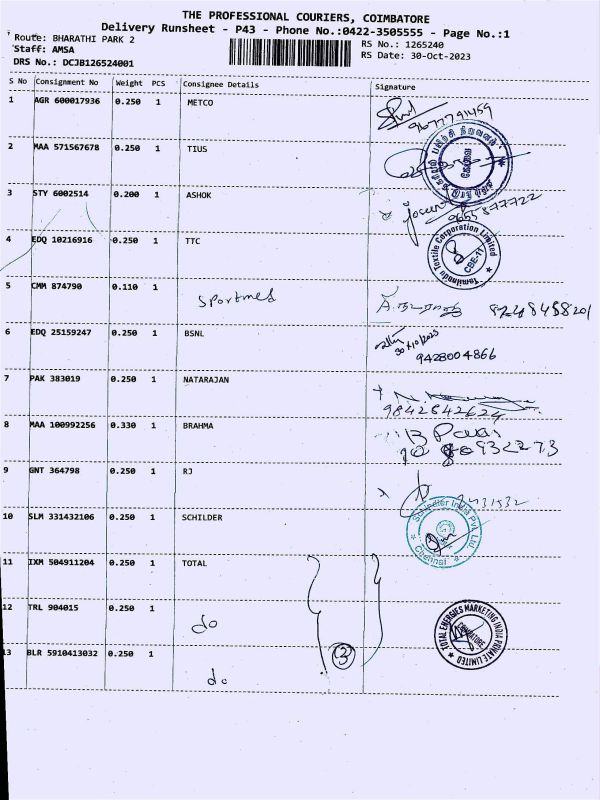 THE PROFESSIONAL COURIERS, COIMBATORE
Delivery Runsheet - P43 - Phone No.:0422-3505555 - Page No.:1
Route: BHARATHI PARK 2
RS No.: 1265240
Staff: AMSA
RS Date: 30-Oct-2023
DRS No.: DCJB126524001
S No Consignment No Weight PCS Consignee Details Signature
1 AGR 600017936 0.250 1 METCO
9677791459
2 MAA 571567678 0.250 1 TIUS
கோவை
3 STY 6002514 0.200 1 ASHOK
9655877722
4 EDQ 10216916 0.250 1 TTC
Tamilnadu Textile Corporation Limited
CBE-11
5 CMM 874790 0.110 1 Sportmed
6 EDQ 25159247 0.250 1 BSNL
30/10/2023
9428004866
7 PAK 383019 0.250 1 NATARAJAN
9842842624
8 MAA 100992256 0.330 1 BRAHMA
9 GNT 364798 0.250 1 RJ
10 SLM 331432106 0.250 1 SCHILDER
Schindler India Pvt. Ltd.
Chennai
11 IXM 504911204 0.250 1 TOTAL
12 TRL 904015 0.250 1 do
TOTAL ENERGIES MARKETING INDIA PRIVATE LIMITED
COIMBATORE
13 BLR 5910413032 0.250 1 do
3